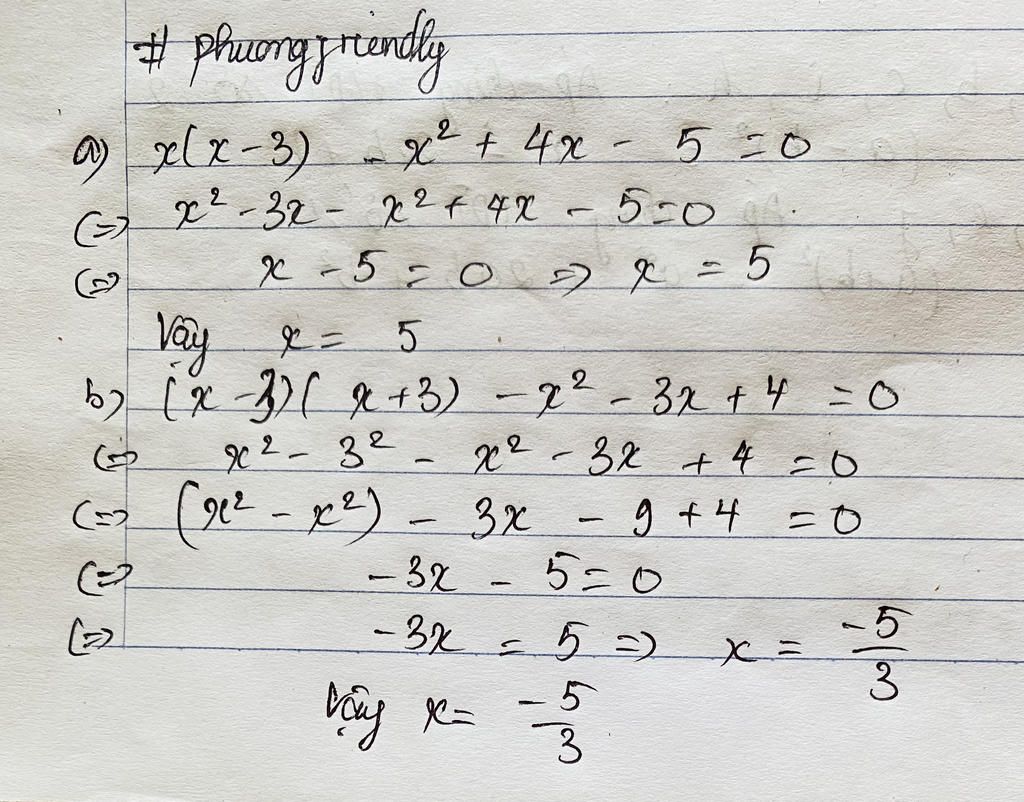 # phuongfriendly
a) x(x-3) - x² + 4x - 5 = 0
(=) x² - 3x - x² + 4x - 5 = 0
(=) x - 5 = 0 => x = 5
Vậy x = 5
b) (x-3)(x+3) - x² - 3x + 4 = 0
(=) x² - 3² - x² - 3x + 4 = 0
(=> (x² - x²) - 3x - 9 + 4 = 0
(=> -3x - 5 = 0
(=> -3x = 5 => x = -5/3
Vậy x = -5/3